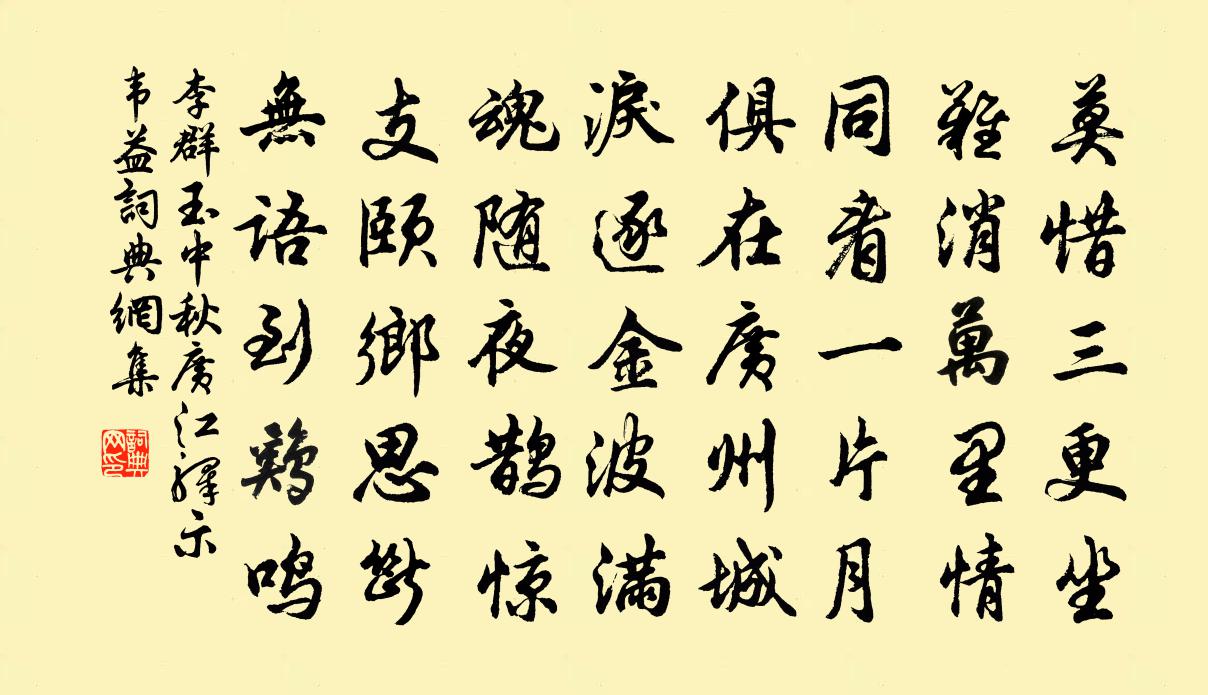 莫惜三更坐
難消萬里情
同看一片月
俱在廣州城
淚逐金波滿
魂随夜鵲惊
支頤鄉思斷
無語到鷄鳴
李群玉中秋廣江驛示
韦益詞典網集
詞典网印